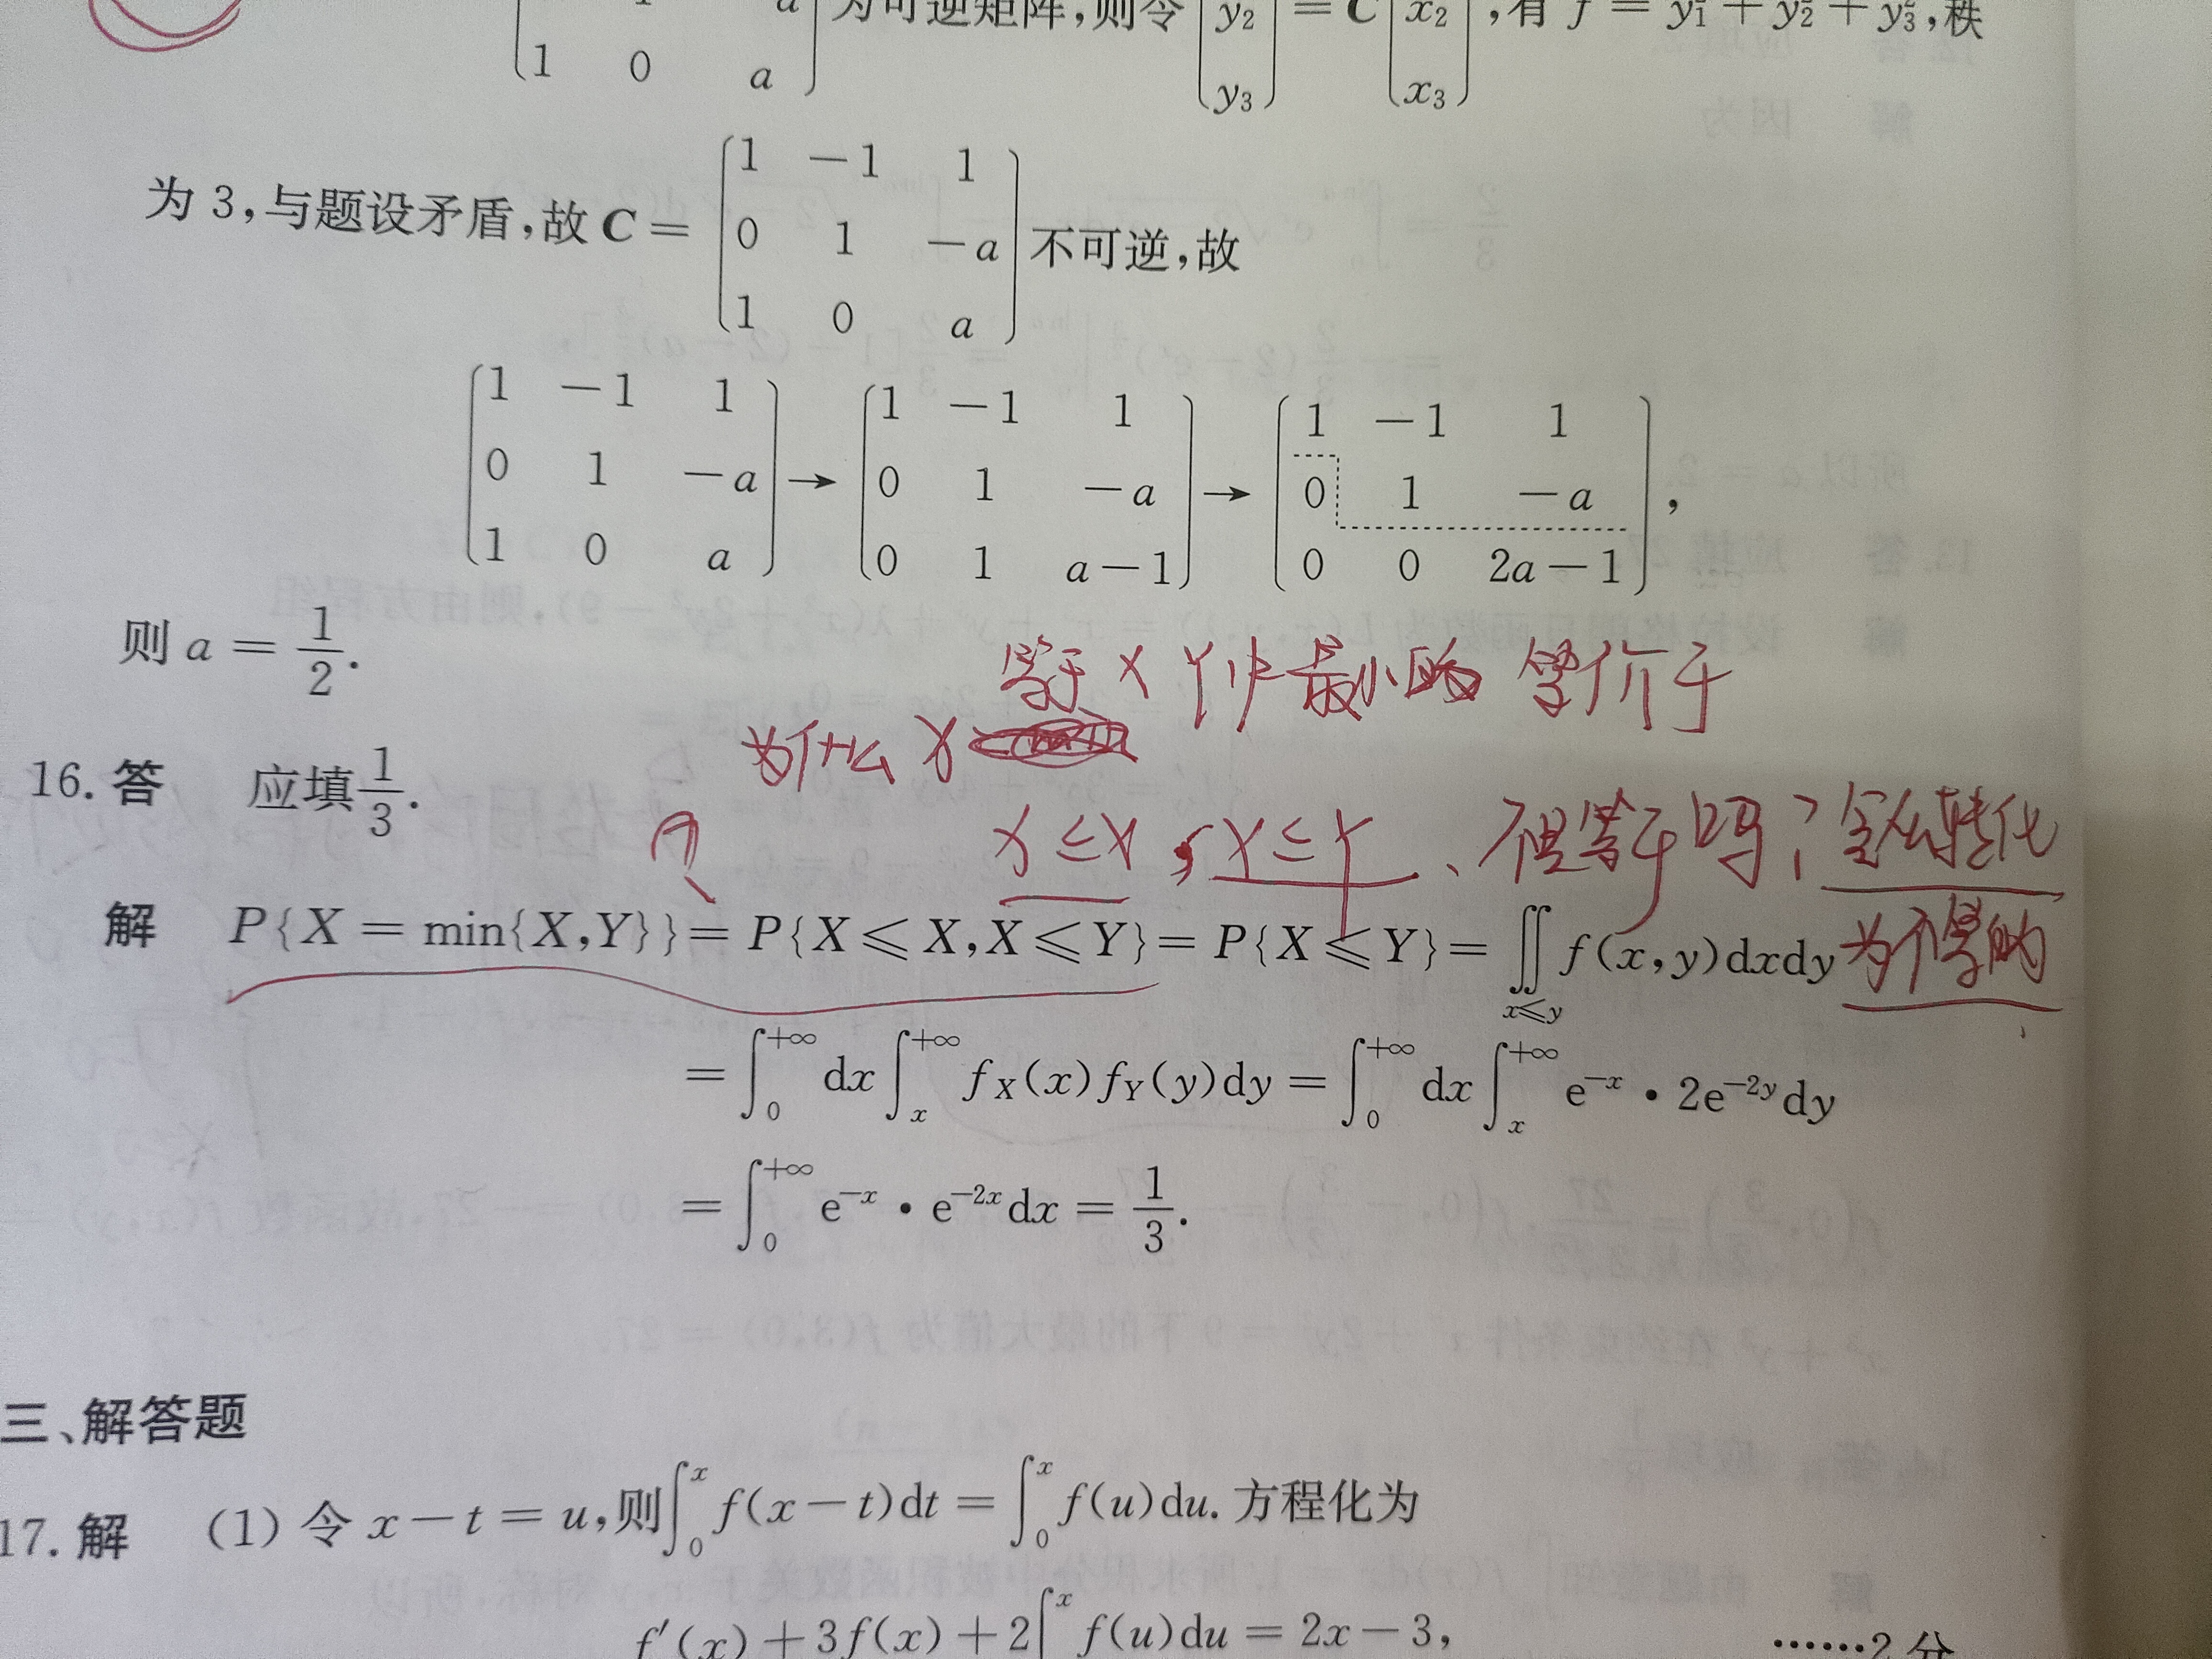 1 0 a 为可逆矩阵,则令 y₂ y₃ = C x₂ x₃ ,有 f = y₁² + y₂² + y₃²,秩
为 3,与题设矛盾,故 C = (1 −1 1; 0 1 −a; 1 0 a) 不可逆,故
(1 −1 1; 0 1 −a; 1 0 a) → (1 −1 1; 0 1 −a; 0 1 a−1) → (1 −1 1; 0 1 −a; 0 0 2a−1) ,
则 a = 1/2.
等于 X Y中最小的 等价于
为什么 X
16. 答 应填 1/3.
X ≤ X , X ≤ Y 、不是等于吗?怎么转化
解 P{X = min{X,Y}} = P{X ⩽ X, X ⩽ Y} = P{X ⩽ Y} = ∬_{x⩽y} f(x,y)dxdy 为不等的
= ∫₀^{+∞} dx ∫ₓ^{+∞} f_X(x) f_Y(y)dy = ∫₀^{+∞} dx ∫ₓ^{+∞} e^{−x} • 2e^{−2y} dy
= ∫₀^{+∞} e^{−x} • e^{−2x} dx = 1/3.
三、解答题
17. 解 (1) 令 x − t = u,则 ∫₀^x f(x − t)dt = ∫₀^x f(u)du. 方程化为
f′(x) + 3f(x) + 2∫^x f(u)du = 2x − 3, ……2分